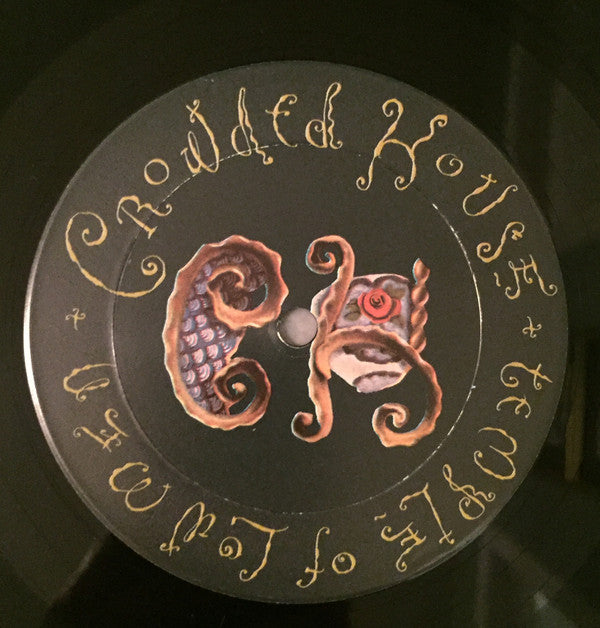 Crowded House + Temple of Low Men +
CH